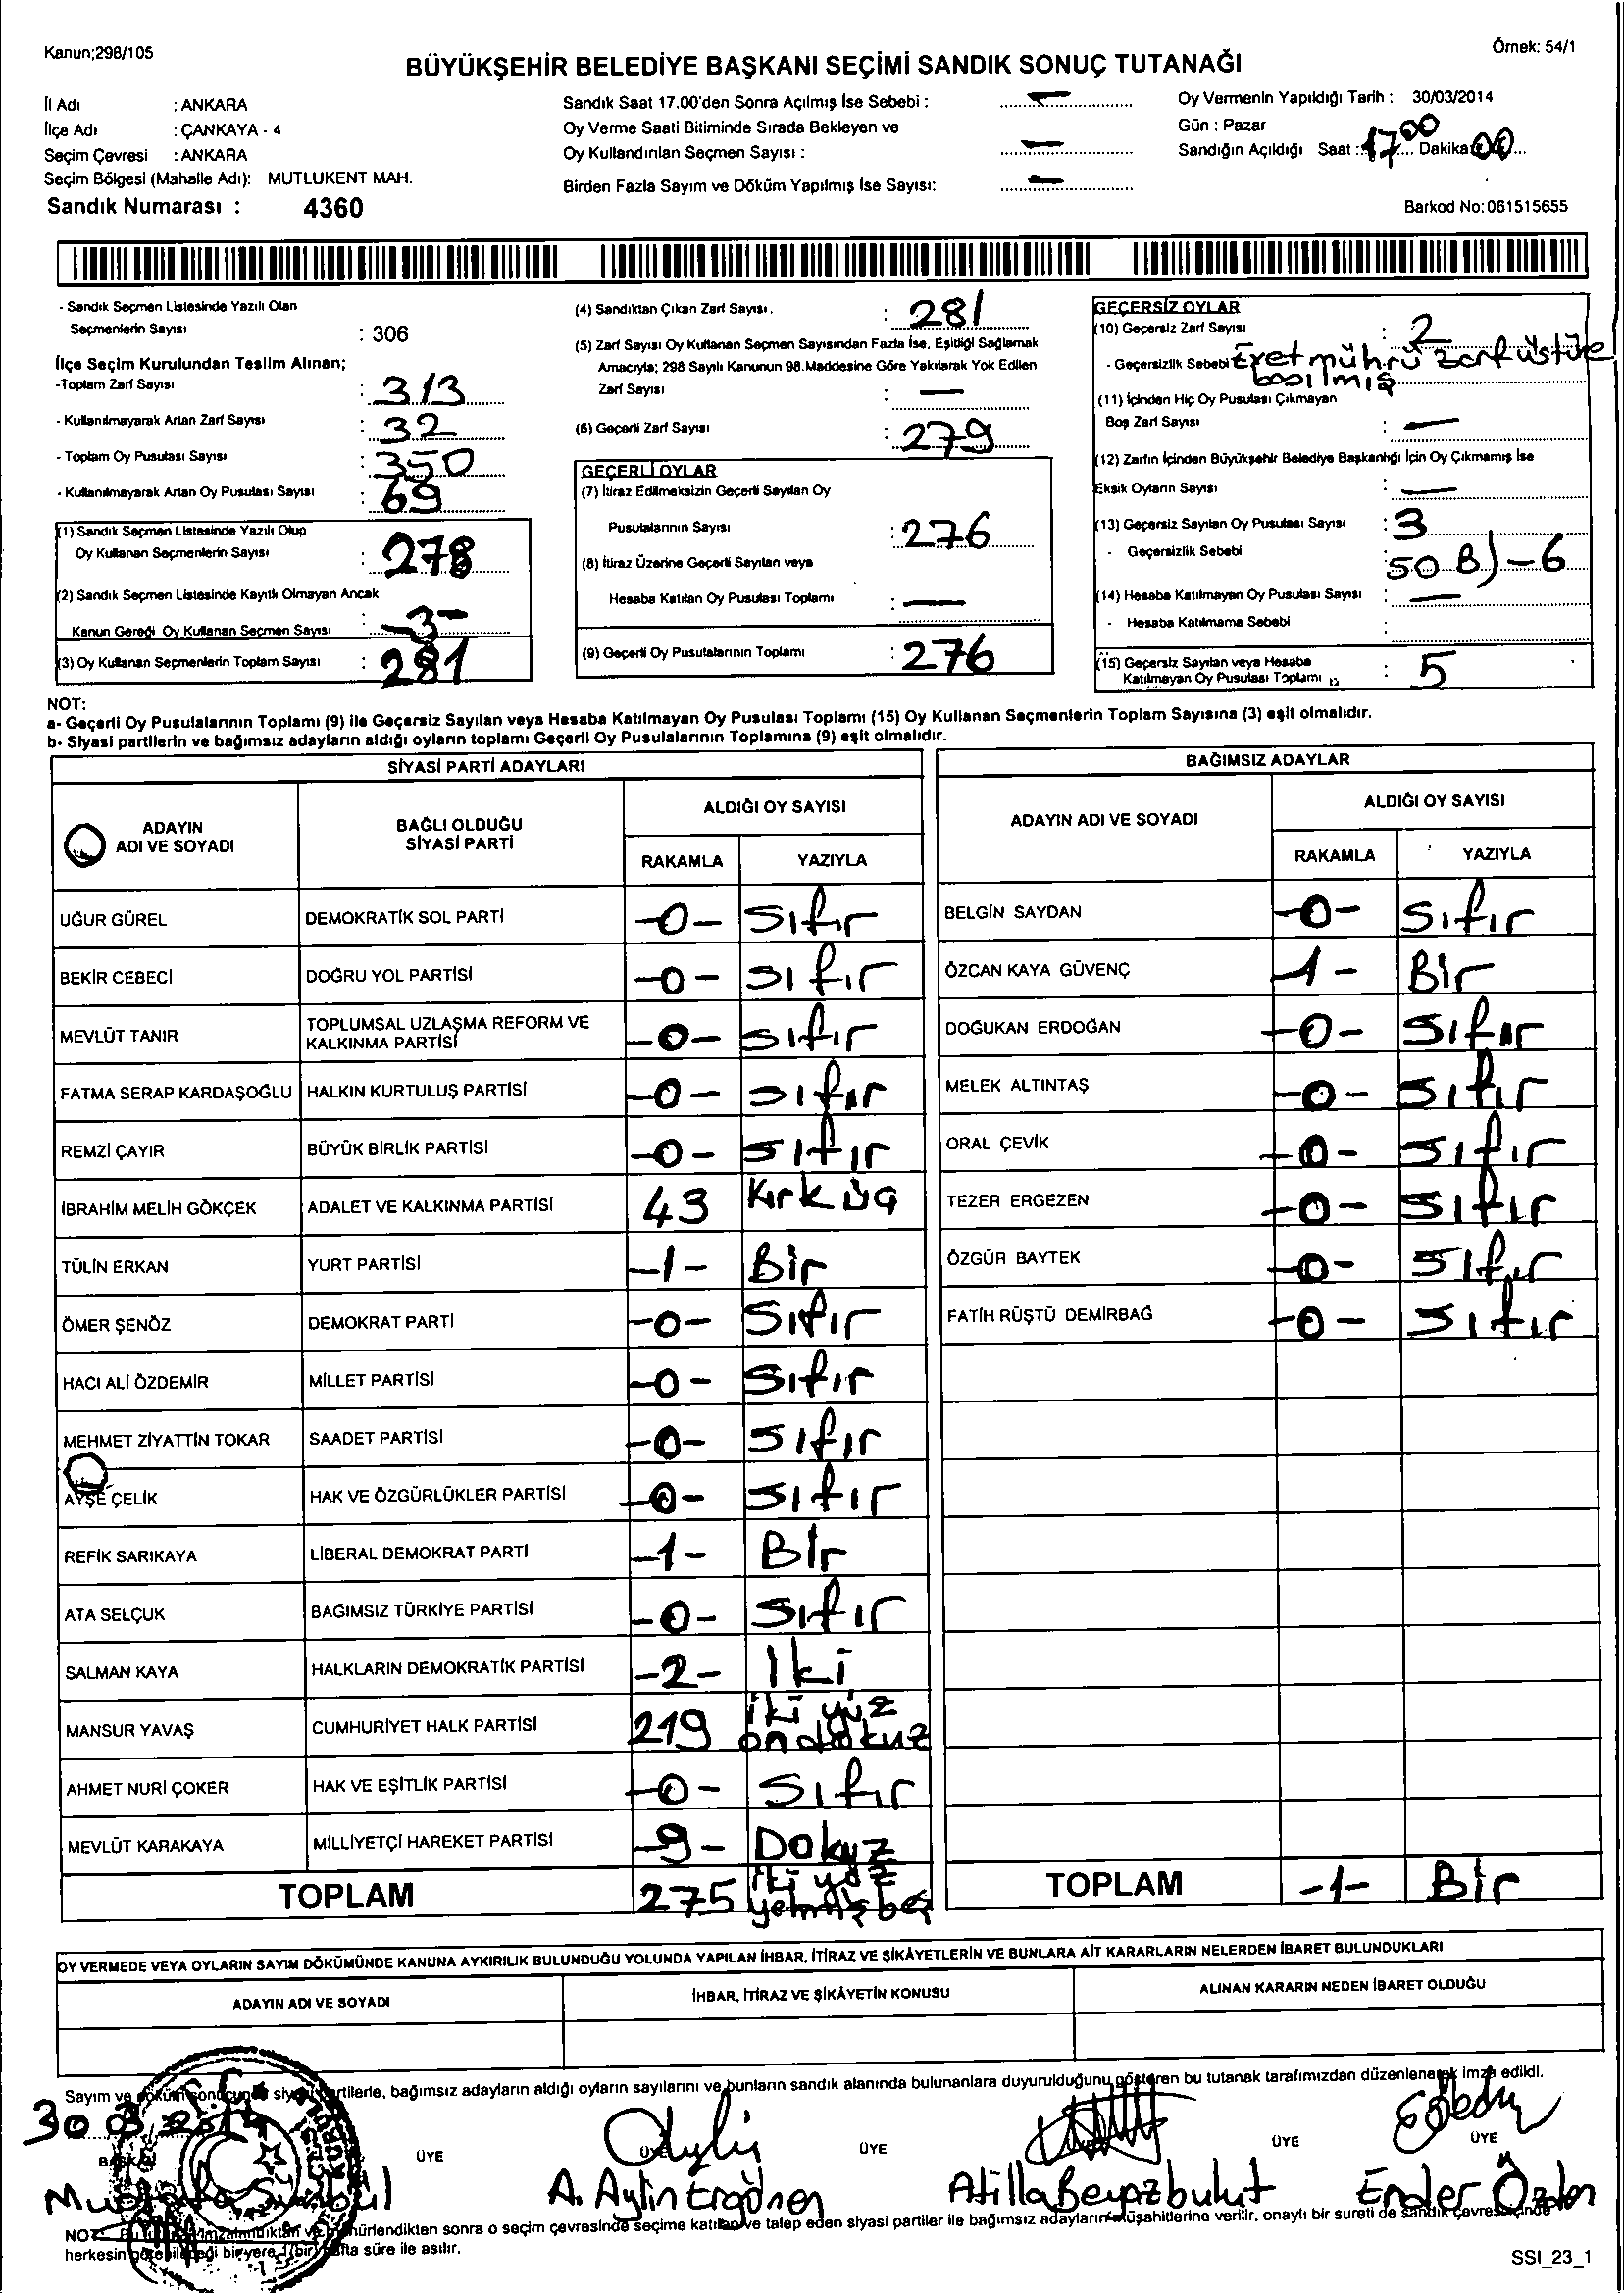 Kanun;298/105
Örnek: 54/1
BÜYÜKŞEHİR BELEDİYE BAŞKANI SEÇİMİ SANDIK SONUÇ TUTANAĞI
İl Adı : ANKARA
İlçe Adı : ÇANKAYA - 4
Seçim Çevresi : ANKARA
Seçim Bölgesi (Mahalle Adı): MUTLUKENT MAH.
Sandık Numarası : 4360
Sandık Saat 17.00'den Sonra Açılmış İse Sebebi : —
Oy Verme Saati Bitiminde Sırada Bekleyen ve
Oy Kullandırılan Seçmen Sayısı : —
Birden Fazla Sayım ve Döküm Yapılmış İse Sayısı: —
Oy Vermenin Yapıldığı Tarih : 30/03/2014
Gün : Pazar
Sandığın Açıldığı Saat : 17 00 Dakika 00
Barkod No:061515655
- Sandık Seçmen Listesinde Yazılı Olan
Seçmenlerin Sayısı : 306
İlçe Seçim Kurulundan Teslim Alınan;
-Toplam Zarf Sayısı : 313
- Kullanılmayarak Artan Zarf Sayısı : 32
- Toplam Oy Pusulası Sayısı : 350
- Kullanılmayarak Artan Oy Pusulası Sayısı : 69
(1) Sandık Seçmen Listesinde Yazılı Olup
Oy Kullanan Seçmenlerin Sayısı : 278
(2) Sandık Seçmen Listesinde Kayıtlı Olmayan Ancak
Kanun Gereği Oy Kullanan Seçmen Sayısı : -3-
(3) Oy Kullanan Seçmenlerin Toplam Sayısı : 281
(4) Sandıktan Çıkan Zarf Sayısı. : 281
(5) Zarf Sayısı Oy Kullanan Seçmen Sayısından Fazla İse, Eşitliği Sağlamak
Amacıyla; 298 Sayılı Kanunun 98.Maddesine Göre Yakılarak Yok Edilen
Zarf Sayısı : —
(6) Geçerli Zarf Sayısı : 279
GEÇERLİ OYLAR
(7) İtiraz Edilmeksizin Geçerli Sayılan Oy
Pusulalarının Sayısı : 276
(8) İtiraz Üzerine Geçerli Sayılan veya
Hesaba Katılan Oy Pusulası Toplamı : —
(9) Geçerli Oy Pusulalarının Toplamı : 276
GEÇERSİZ OYLAR
(10) Geçersiz Zarf Sayısı : 2
- Geçersizlik Sebebi Evet mührü zarf üstüne
basılmış
(11) İçinden Hiç Oy Pusulası Çıkmayan
Boş Zarf Sayısı : —
(12) Zarfın İçinden Büyükşehir Belediye Başkanlığı İçin Oy Çıkmamış İse
Eksik Oyların Sayısı : —
(13) Geçersiz Sayılan Oy Pusulası Sayısı : 3
- Geçersizlik Sebebi : 50 B) - 6
(14) Hesaba Katılmayan Oy Pusulası Sayısı : —
- Hesaba Katılmama Sebebi :
(15) Geçersiz Sayılan veya Hesaba
Katılmayan Oy Pusulası Toplamı : 5
NOT:
a- Geçerli Oy Pusulalarının Toplamı (9) ile Geçersiz Sayılan veya Hesaba Katılmayan Oy Pusulası Toplamı (15) Oy Kullanan Seçmenlerin Toplam Sayısına (3) eşit olmalıdır.
b- Siyasi partilerin ve bağımsız adayların aldığı oyların toplamı Geçerli Oy Pusulalarının Toplamına (9) eşit olmalıdır.
SİYASİ PARTİ ADAYLARI
ADAYIN
ADI VE SOYADI
BAĞLI OLDUĞU
SİYASİ PARTİ
ALDIĞI OY SAYISI
RAKAMLA YAZIYLA
UĞUR GÜREL DEMOKRATİK SOL PARTİ -0- Sıfır
BEKİR CEBECİ DOĞRU YOL PARTİSİ -0- Sıfır
MEVLÜT TANIR TOPLUMSAL UZLAŞMA REFORM VE
KALKINMA PARTİSİ -0- Sıfır
FATMA SERAP KARDAŞOĞLU HALKIN KURTULUŞ PARTİSİ -0- Sıfır
REMZİ ÇAYIR BÜYÜK BİRLİK PARTİSİ -0- Sıfır
İBRAHİM MELİH GÖKÇEK ADALET VE KALKINMA PARTİSİ 43 Kırk üç
TÜLİN ERKAN YURT PARTİSİ -1- Bir
ÖMER ŞENÖZ DEMOKRAT PARTİ -0- Sıfır
HACI ALİ ÖZDEMİR MİLLET PARTİSİ -0- Sıfır
MEHMET ZİYATTİN TOKAR SAADET PARTİSİ -0- Sıfır
AYŞE ÇELİK HAK VE ÖZGÜRLÜKLER PARTİSİ -0- Sıfır
REFİK SARIKAYA LİBERAL DEMOKRAT PARTİ -1- Bir
ATA SELÇUK BAĞIMSIZ TÜRKİYE PARTİSİ -0- Sıfır
SALMAN KAYA HALKLARIN DEMOKRATİK PARTİSİ -2- İki
MANSUR YAVAŞ CUMHURİYET HALK PARTİSİ 219 iki yüz
ondokuz
AHMET NURİ ÇOKER HAK VE EŞİTLİK PARTİSİ -0- Sıfır
MEVLÜT KARAKAYA MİLLİYETÇİ HAREKET PARTİSİ -9- Dokuz
TOPLAM 275 iki yüz
yetmiş beş
BAĞIMSIZ ADAYLAR
ADAYIN ADI VE SOYADI
ALDIĞI OY SAYISI
RAKAMLA YAZIYLA
BELGİN SAYDAN -0- Sıfır
ÖZCAN KAYA GÜVENÇ -1- Bir
DOĞUKAN ERDOĞAN -0- Sıfır
MELEK ALTINTAŞ -0- Sıfır
ORAL ÇEVİK -0- Sıfır
TEZER ERGEZEN -0- Sıfır
ÖZGÜR BAYTEK -0- Sıfır
FATİH RÜŞTÜ DEMİRBAĞ -0- Sıfır
TOPLAM -1- Bir
OY VERMEDE VEYA OYLARIN SAYIM DÖKÜMÜNDE KANUNA AYKIRILIK BULUNDUĞU YOLUNDA YAPILAN İHBAR, İTİRAZ VE ŞİKÂYETLERİN VE BUNLARA AİT KARARLARIN NELERDEN İBARET BULUNDUKLARI
ADAYIN ADI VE SOYADI İHBAR, İTİRAZ VE ŞİKÂYETİN KONUSU ALINAN KARARIN NEDEN İBARET OLDUĞU
Sayım ve döküm sonucunda siyasi partilerle, bağımsız adayların aldığı oyların sayılarını ve bunların sandık alanında bulunanlara duyurulduğunu gösteren bu tutanak tarafımızdan düzenlenerek imza edildi.
30 03 2014
BAŞKAN ÜYE ÜYE ÜYE ÜYE ÜYE
Mustafa Sünbül A. Aylin Erginer Atilla Beyazbulut Ender Özden
NOT: Bu tutanak imzalandıktan ve mühürlendikten sonra o seçim çevresinde seçime katılan ve talep eden siyasi partiler ile bağımsız adayların müşahitlerine verilir, onaylı bir sureti de sandık çevresi içinde
herkesin görebileceği bir yere 1(bir) hafta süre ile asılır.
SSI_23_1